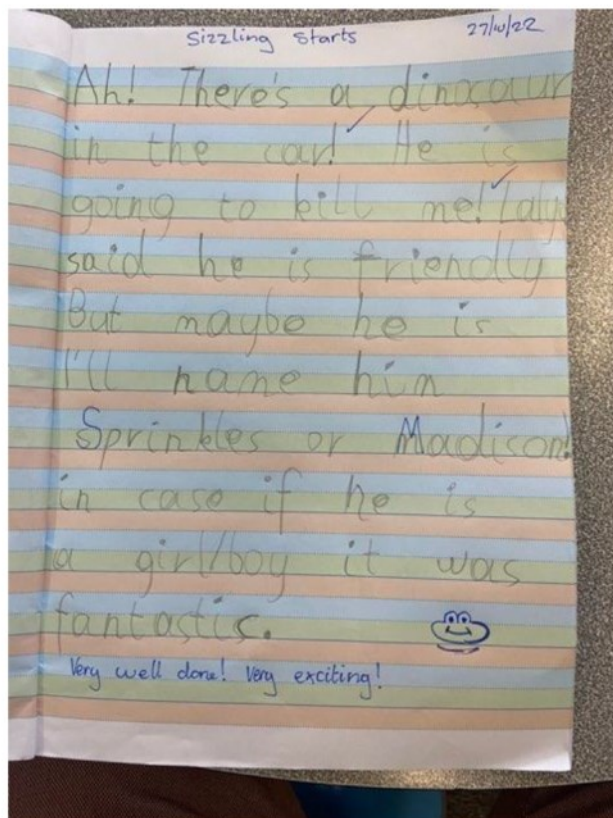 Sizzling Starts 27/10/22
Ah! There's a dinosaur
in the car! He is
going to kill me!
said he is friendly
But maybe he is
I'll name him
Sprinkles or Madison!
in case if he is
a girl/boy it was
fantastic.
Very well done! Very exciting!